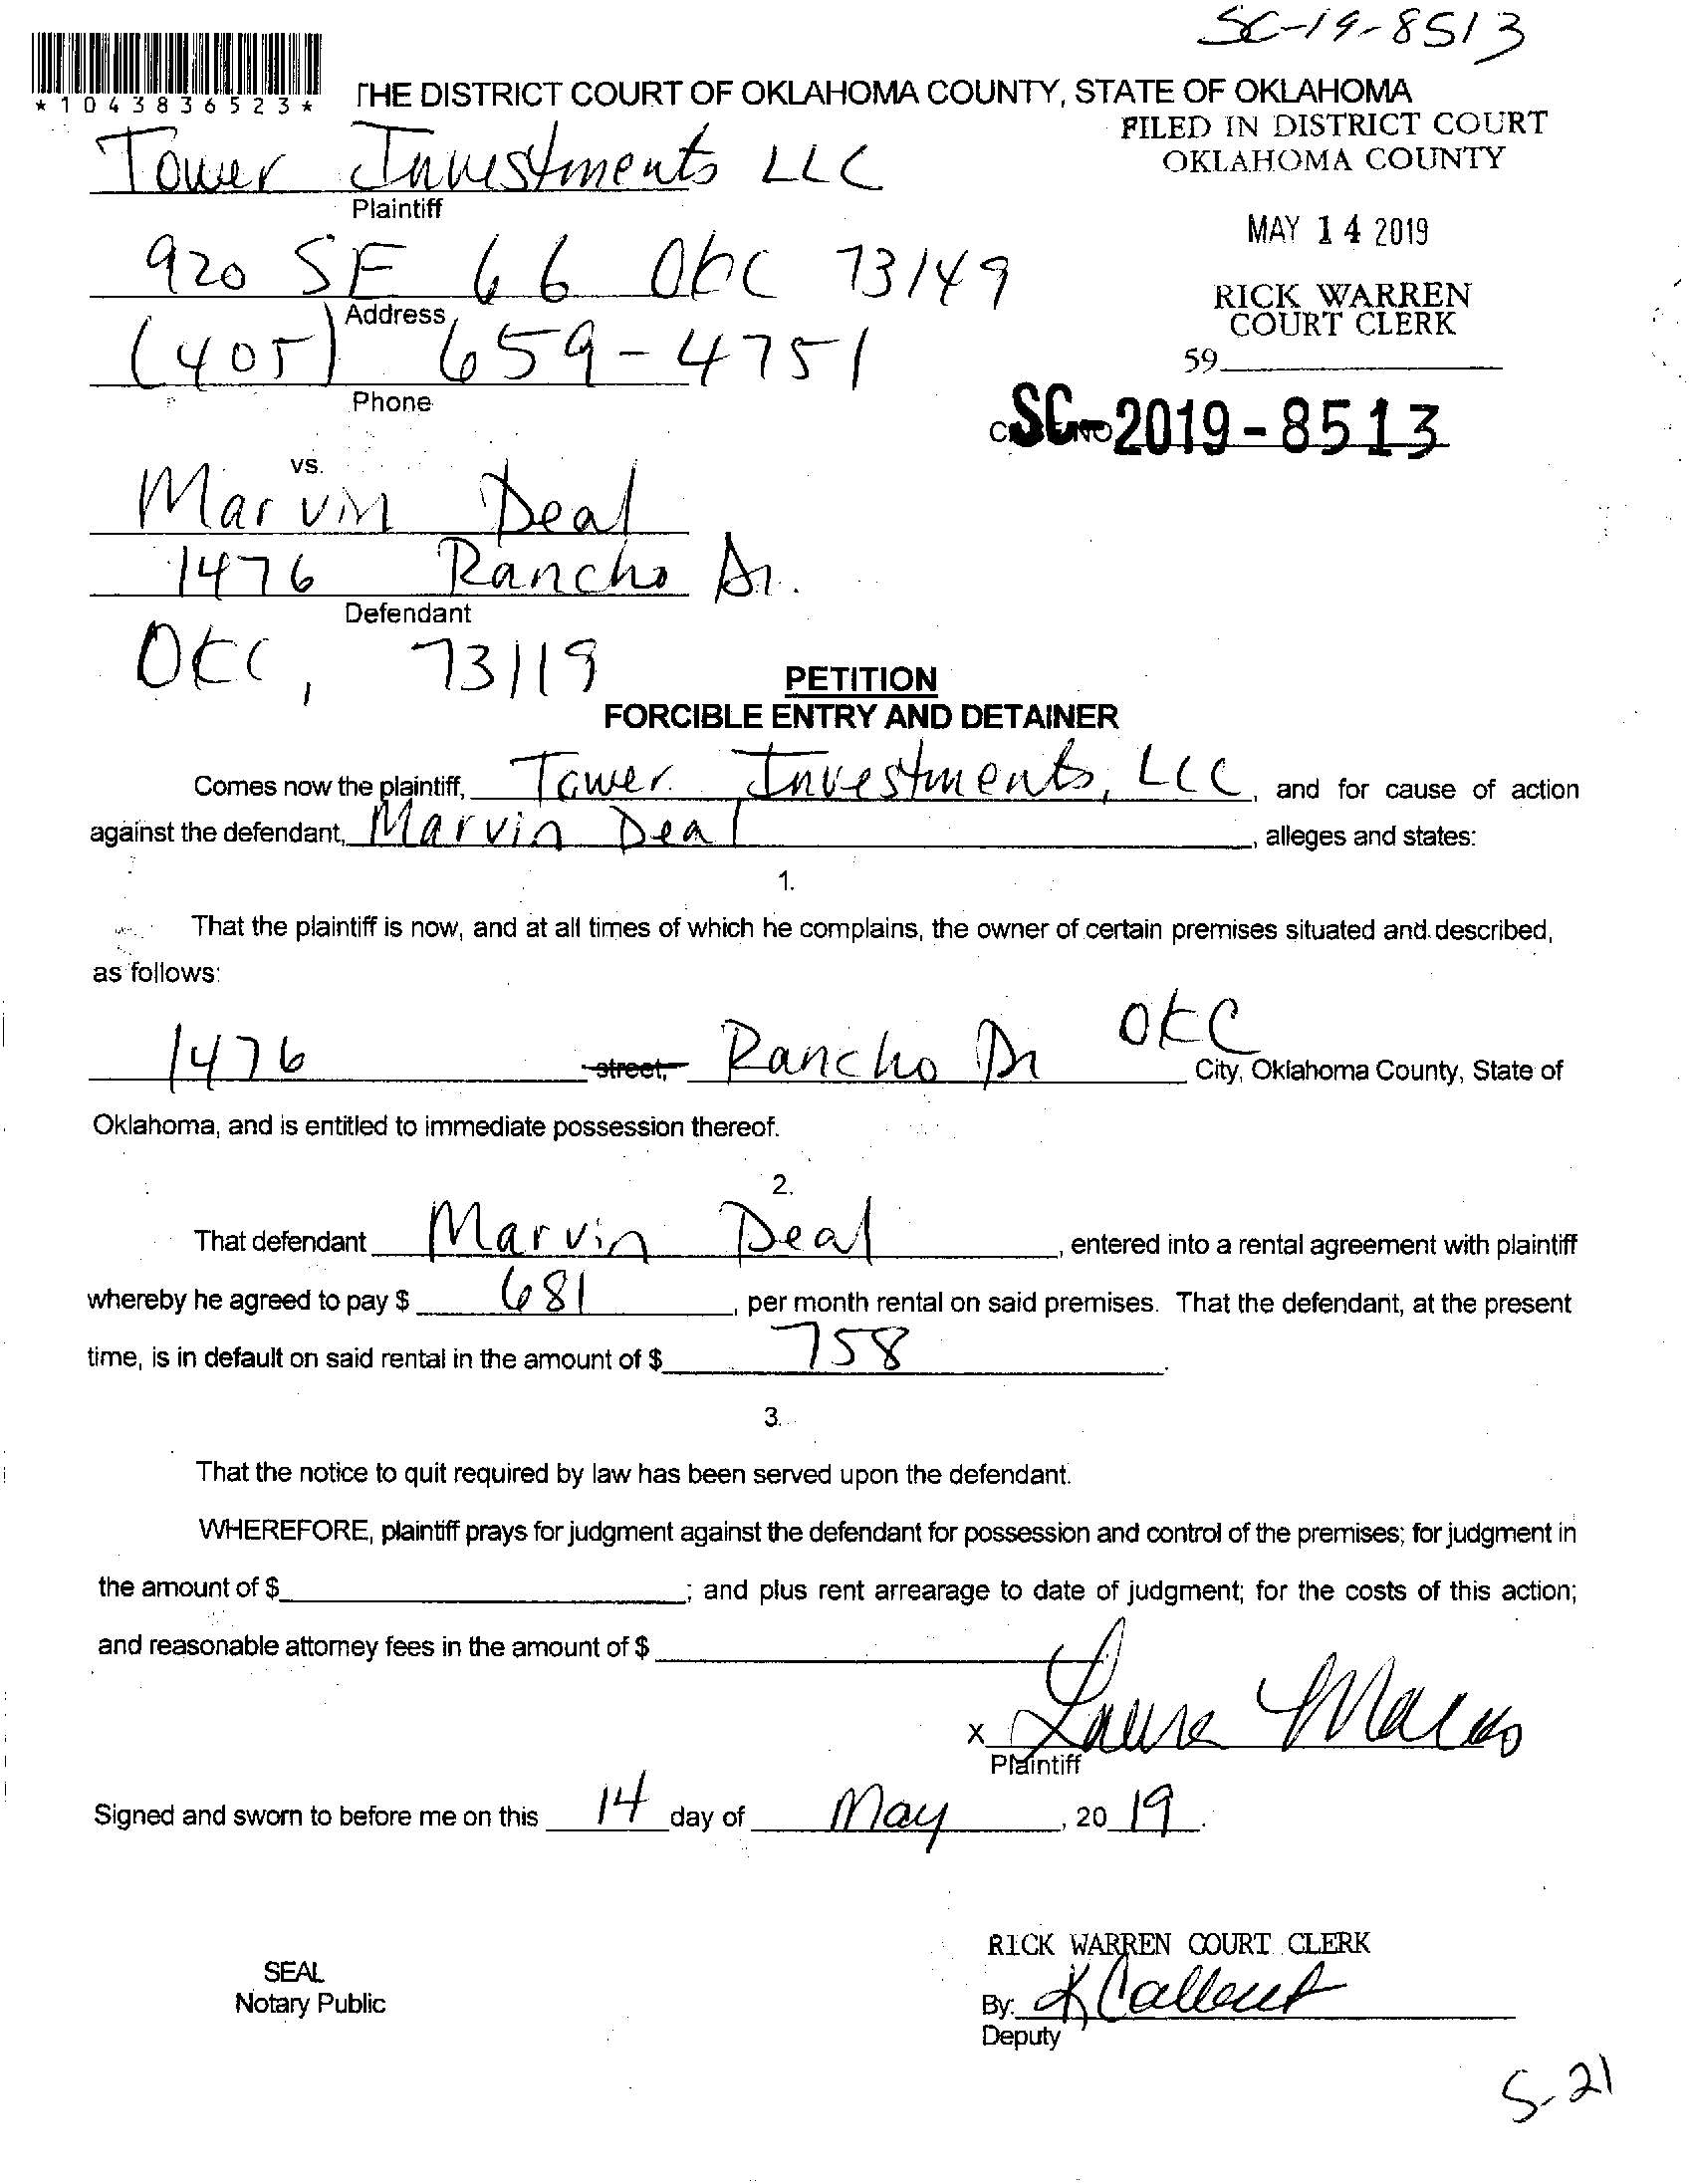 SC-19-8513
*1043836523*
THE DISTRICT COURT OF OKLAHOMA COUNTY, STATE OF OKLAHOMA
FILED IN DISTRICT COURT
OKLAHOMA COUNTY
Tower Investments LLC
Plaintiff
MAY 14 2019
920 SE 66 OKC 73149
Address
RICK WARREN
COURT CLERK
(405) 659-4751
59
Phone
SC-2019-8513
vs.
Marvin Deal
1476 Rancho Dr.
Defendant
OKC, 73119
PETITION
FORCIBLE ENTRY AND DETAINER
Comes now the plaintiff, Tower Investments, LLC, and for cause of action
against the defendant, Marvin Deal, alleges and states:
1.
That the plaintiff is now, and at all times of which he complains, the owner of certain premises situated and described,
as follows:
1476 street, Rancho Dr OKC City, Oklahoma County, State of
Oklahoma, and is entitled to immediate possession thereof.
2.
That defendant Marvin Deal, entered into a rental agreement with plaintiff
whereby he agreed to pay $ 681, per month rental on said premises. That the defendant, at the present
time, is in default on said rental in the amount of $ 758.
3.
That the notice to quit required by law has been served upon the defendant.
WHEREFORE, plaintiff prays for judgment against the defendant for possession and control of the premises; for judgment in
the amount of $ ; and plus rent arrearage to date of judgment; for the costs of this action;
and reasonable attorney fees in the amount of $ .
x Laura
Plaintiff
Signed and sworn to before me on this 14 day of May, 20 19.
RICK WARREN COURT CLERK
SEAL
Notary Public
By: K
Deputy
5-21